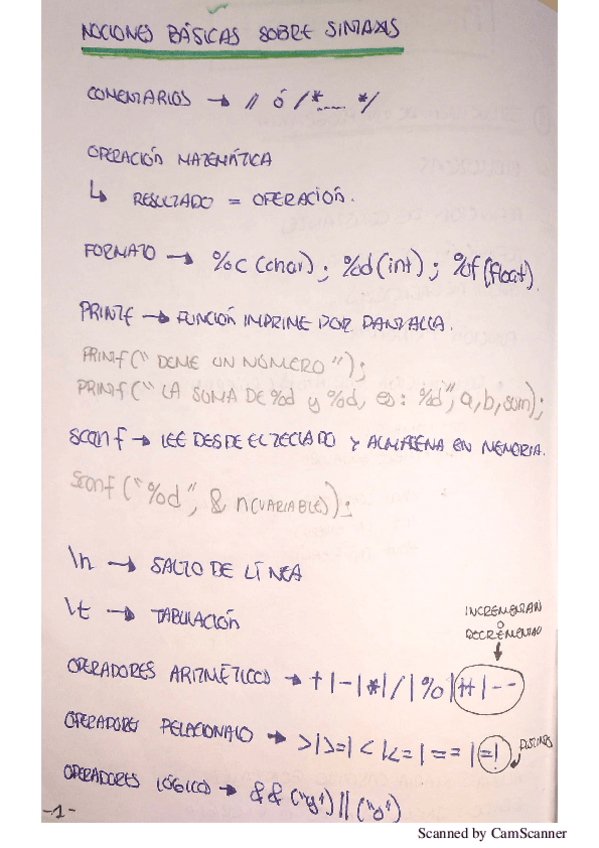 NOCIONES BÁSICAS SOBRE SINTAXIS
COMENTARIOS → // ó /*.... */
OPERACIÓN MATEMÁTICA
↳ RESULTADO = OPERACIÓN.
FORMATO → %c (char) ; %d (int) ; %f (float).
PRINTF → FUNCIÓN IMPRIME POR PANTALLA.
PRINTF (" DEME UN NÚMERO ");
PRINTF (" LA SUMA DE %d y %d, es: %d", a, b, sum);
scanf → LEE DESDE EL TECLADO Y ALMACENA EN MEMORIA.
scanf ("%d", & n(VARIABLE));
\n → SALTO DE LÍNEA
\t → TABULACIÓN
INCREMENTAN
O
DECREMENTAN
OPERADORES ARITMÉTICOS → + | - | * | / | % | ++ | --
OPERADORES RELACIONALES → > | >= | < | <= | == | =! DISTINTOS
OPERADORES LÓGICOS → && ("y") || ("o")
-1-
Scanned by CamScanner